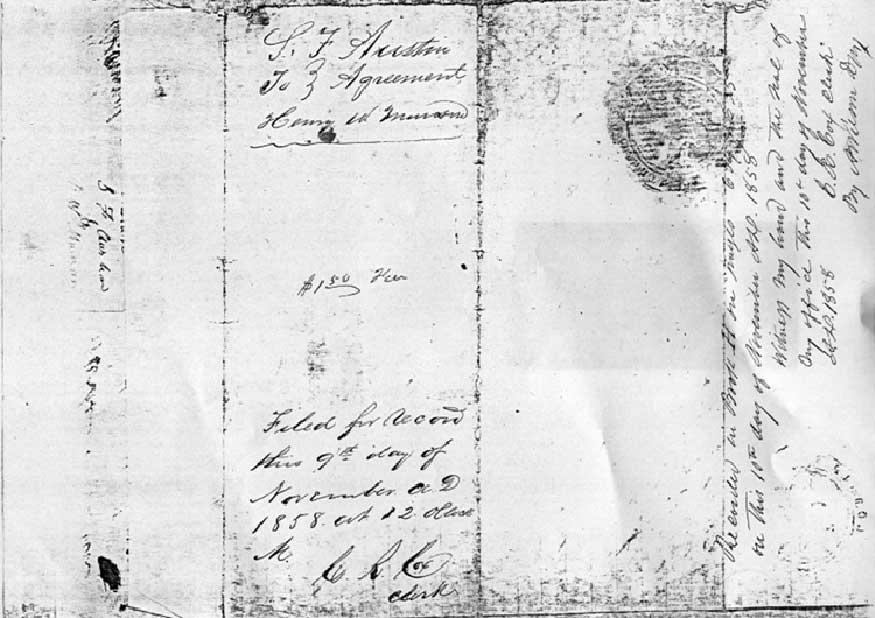 S. F. Austin
To } Agreement
Henry W Munson
$1.50 Fee
Filed for Record
this 9th day of
November A D
1858 at 12 Oclock
M.
C R Cox
Clerk
Recorded in Book H on pages
on This 10th day of November A D. 1858
Witness My hand and the seal of
My office This 10th day of November
A D. 1858 C. R. Cox Clerk
S F Austin